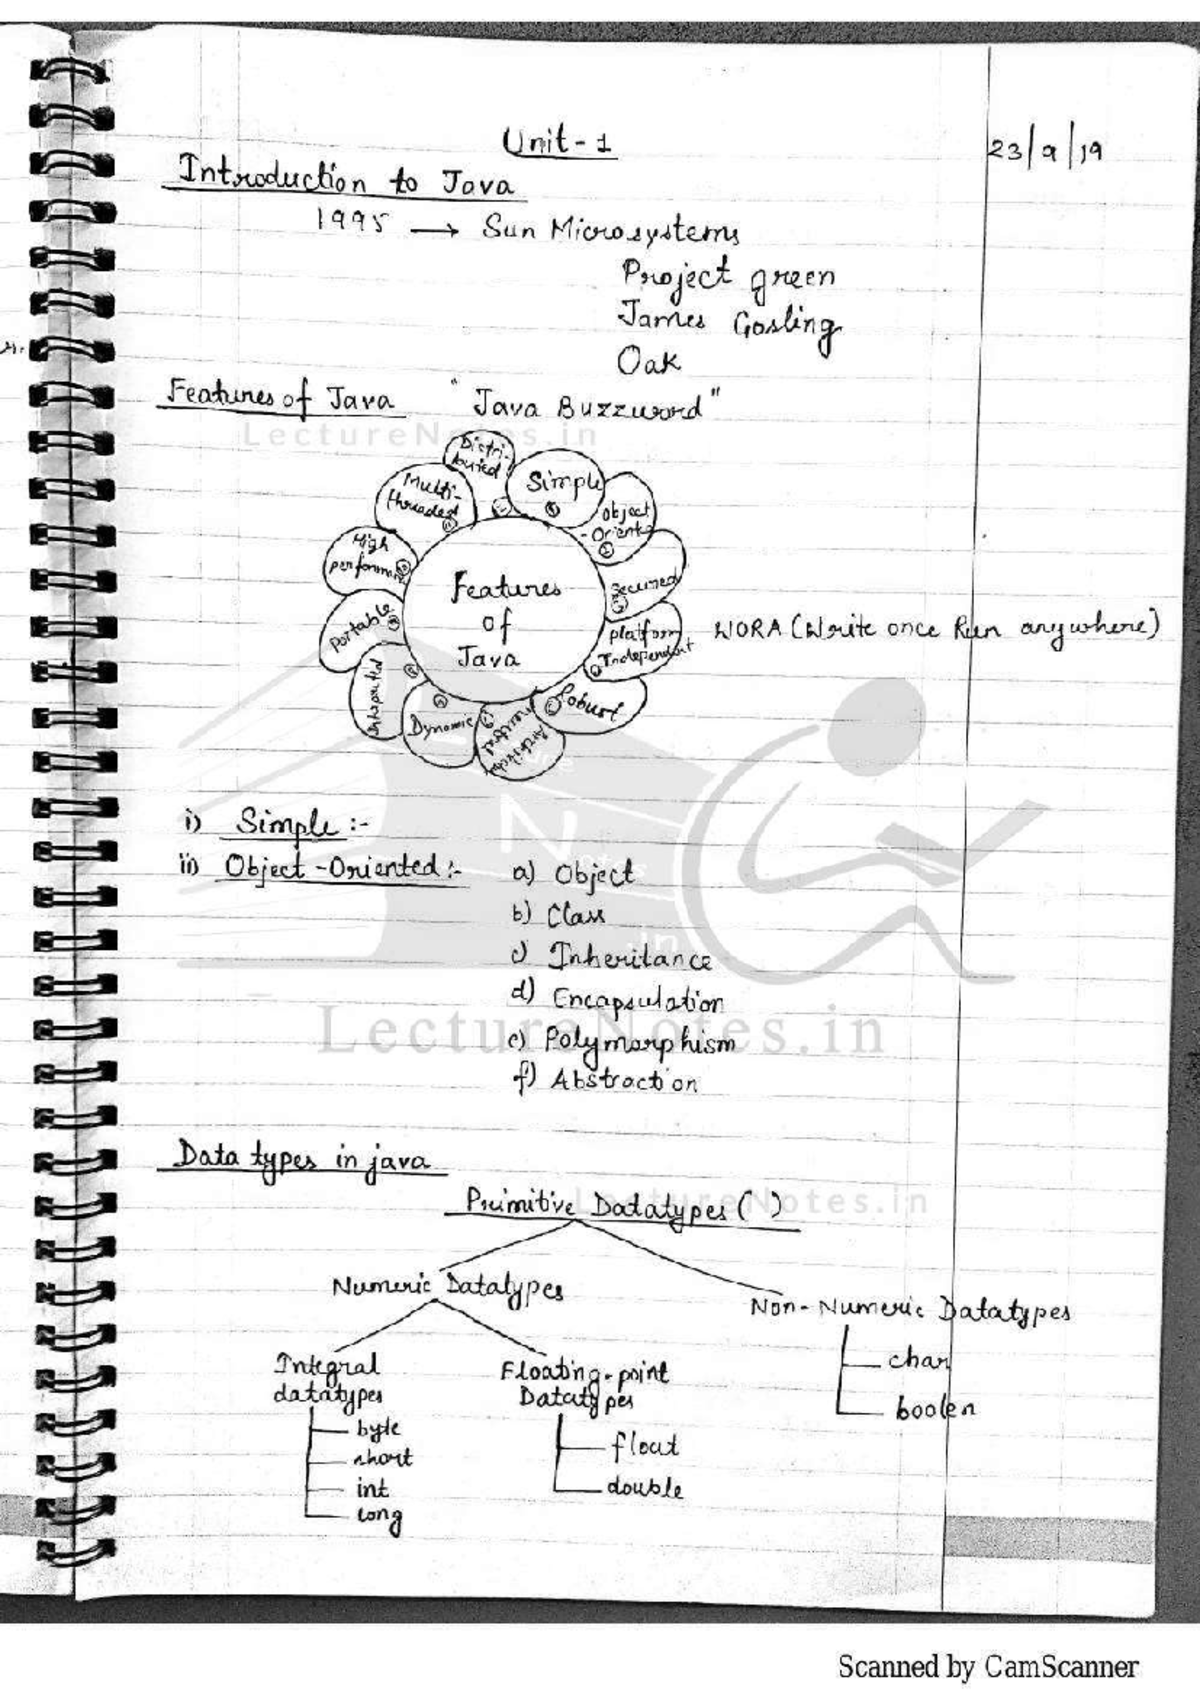 Unit-1
23/9/19
Introduction to Java
1995 → Sun Microsystems
Project green
James Gosling
Oak
Features of Java "Java Buzzword"
LectureNotes.in
Distri-
Simple
Multi-
threaded
Object
-Oriente
High
performan
Secured
Features
of
Java
Portable
platform
Independent
WORA (Write once Run anywhere)
Robust
Dynamic
i) Simple :-
ii) Object-Oriented :- a) Object
b) Class
c) Inheritance
d) Encapsulation
LectureNotes.in
e) Polymorphism
f) Abstraction
Data types in java
LectureNotes.in
Primitive Datatypes ( )
Numeric Datatypes
Non-Numeric Datatypes
Integral
datatypes
Floating-point
Datatypes
char
boolen
byte
short
int
long
float
double
Scanned by CamScanner